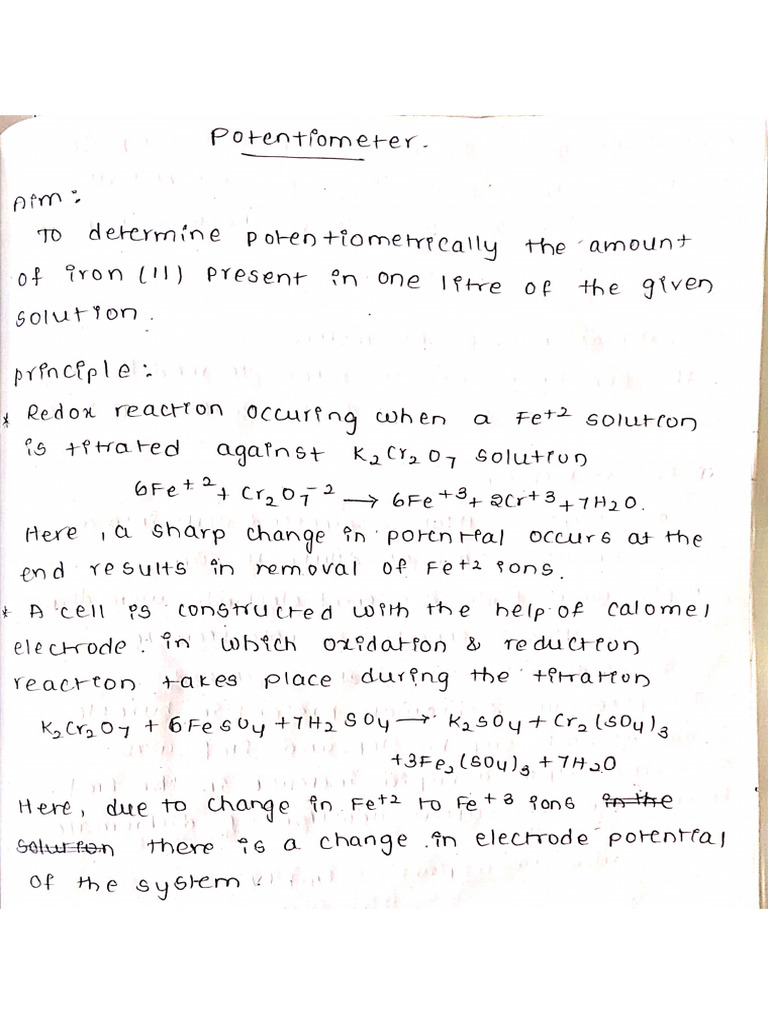 Potentiometer.
Aim:
To determine potentiometrically the amount
of iron (II) present in one litre of the given
solution.
principle:
* Redox reaction occuring when a Fe+2 solution
is titrated against K2Cr2O7 solution
6Fe+2 + Cr2O7-2 → 6Fe+3 + 2Cr+3 + 7H2O.
Here, a sharp change in potential occurs at the
end results in removal of Fe+2 ions.
* A cell is constructed with the help of calomel
electrode. in which oxidation & reduction
reaction takes place during the titration
K2Cr2O7 + 6FeSO4 + 7H2SO4 → K2SO4 + Cr2(SO4)3
+3Fe2(SO4)3 + 7H2O
Here, due to change in Fe+2 to Fe+3 ions in the
solution there is a change in electrode potential
of the system.